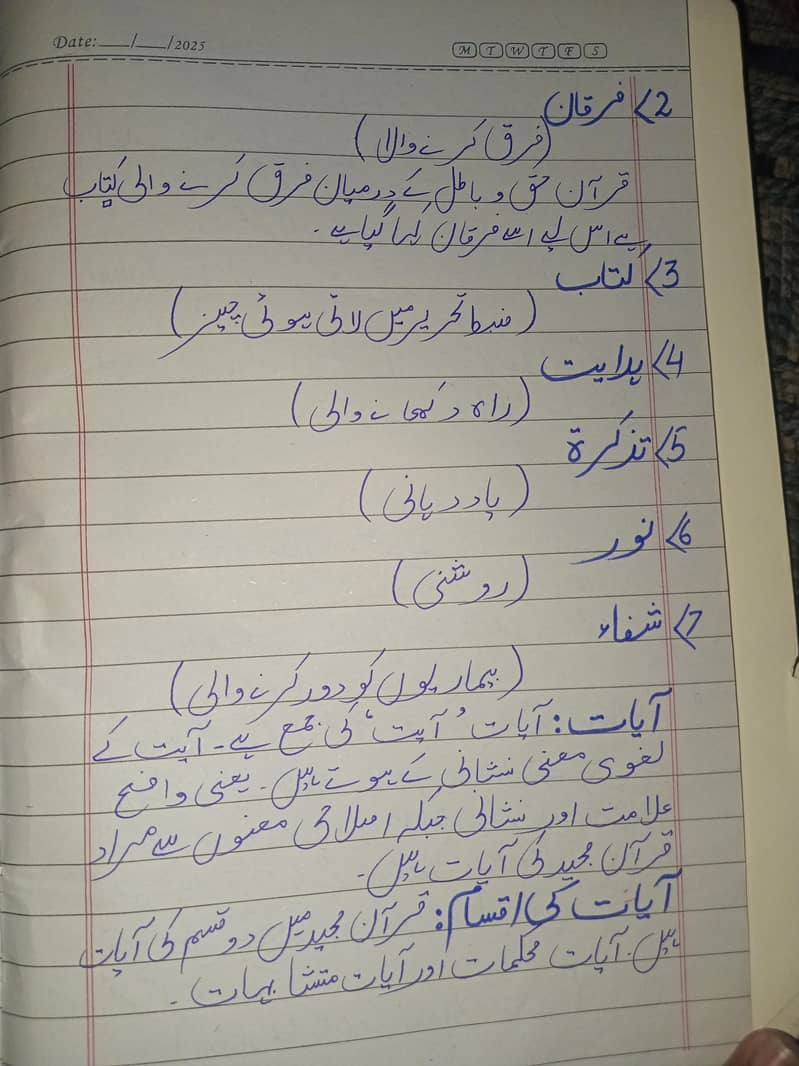 Date: ___/___/2025
M T W T F S
2> فرقان
(فرق کرنے والا)
قرآن حق و باطل کے درمیان فرق کرنے والی کتاب
ہے اس لیے اسے فرقان کہا گیا ہے۔
3> کتاب
(ضبط تحریر میں لائی ہوئی چیز)
4> ہدایت
(راہ دکھانے والی)
5> تذکرة
(یاد دہانی)
6> نور
(روشنی)
7> شفاء
(بیماریوں کو دور کرنے والی)
آیات: آیات 'آیت' کی جمع ہے۔ آیت کے
لغوی معنی نشانی کے ہوتے ہیں۔ یعنی واضح
علامت اور نشانی جبکہ اصلاحی معنوں سے مراد
قرآن مجید کی آیات ہیں۔
آیات کی اقسام: قرآن مجید میں دو قسم کی آیات
ہیں۔ آیات محکمات اور آیات متشابہات۔